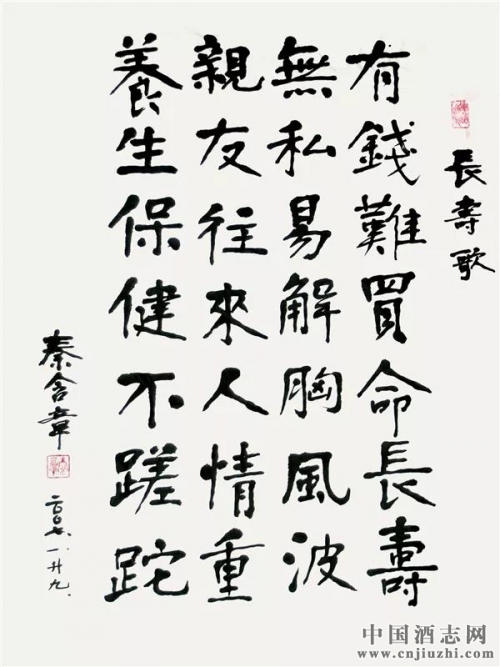 長壽歌
有錢難買命長壽
無私易解胸風波
親友往來人情重
養生保健不蹉跎
秦含章
二〇〇七.一.廿九.
中国酒志网
www.cnjiuzhi.com